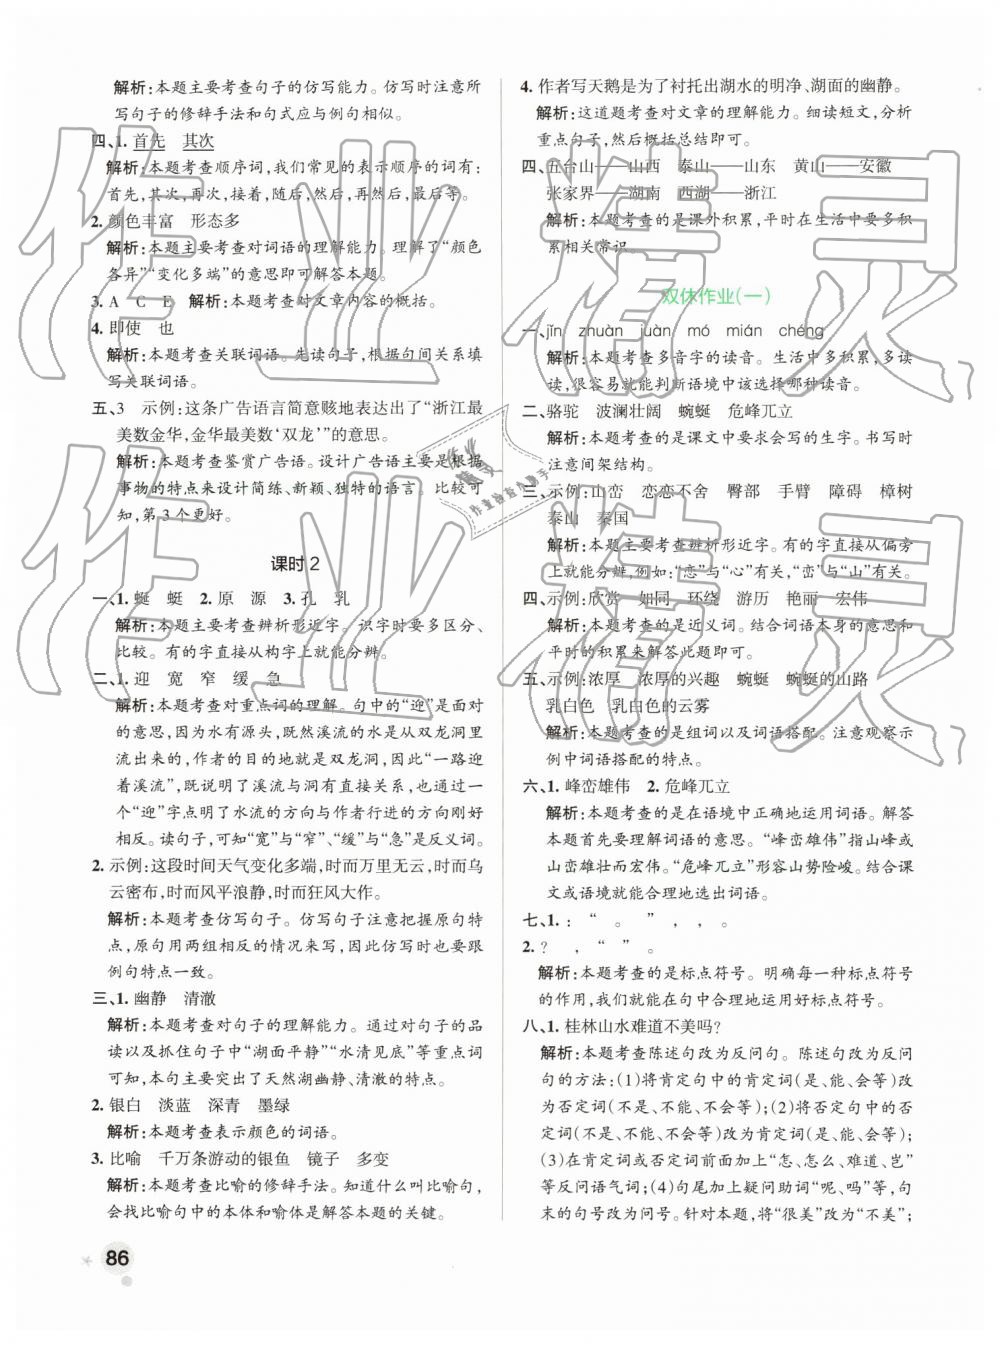 解析:本题主要考查句子的仿写能力。仿写时注意所
写句子的修辞手法和句式应与例句相似。
四、1. 首先 其次
解析:本题考查顺序词,我们常见的表示顺序的词有:
首先,其次,再次,接着,随后,然后,再然后,最后等。
2. 颜色丰富 形态多
解析:本题主要考查对词语的理解能力。理解了“颜色
各异”“变化多端”的意思即可解答本题。
3. A C E 解析:本题考查对文章内容的概括。
4. 即使 也
解析:本题考查关联词语。先读句子,根据句间关系填
写关联词语。
五、3 示例:这条广告语言简意赅地表达出了“浙江最
美数金华,金华最美数‘双龙’”的意思。
解析:本题考查鉴赏广告语。设计广告语主要是根据
事物的特点来设计简练、新颖、独特的语言。比较可
知,第3个更好。
课时2
一、1. 蜒 蜓 2. 原 源 3. 孔 乳
解析:本题主要考查辨析形近字。识字时要多区分、
比较。有的字直接从构字上就能分辨。
二、1. 迎 宽 窄 缓 急
解析:本题考查对重点词的理解。句中的“迎”是面对
的意思,因为水有源头,既然溪流的水是从双龙洞里
流出来的,作者的目的地就是双龙洞,因此“一路迎
着溪流”,既说明了溪流与洞有直接关系,也通过一
个“迎”字点明了水流的方向与作者行进的方向刚好
相反。读句子,可知“宽”与“窄”、“缓”与“急”是反义词。
2. 示例:这段时间天气变化多端,时而万里无云,时而乌
云密布,时而风平浪静,时而狂风大作。
解析:本题考查仿写句子。仿写句子注意把握原句特
点,原句用两组相反的情况来写,因此仿写时也要跟
例句特点一致。
三、1. 幽静 清澈
解析:本题考查对句子的理解能力。通过对句子的品
读以及抓住句子中“湖面平静”“水清见底”等重点词
可知,本句主要突出了天然湖幽静、清澈的特点。
2. 银白 淡蓝 深青 墨绿
解析:本题考查表示颜色的词语。
3. 比喻 千万条游动的银鱼 镜子 多变
解析:本题考查比喻的修辞手法。知道什么叫比喻句,
会找比喻句中的本体和喻体是解答本题的关键。
86
4. 作者写天鹅是为了衬托出湖水的明净、湖面的幽静。
解析:这道题考查对文章的理解能力。细读短文,分析
重点句子,然后概括总结即可。
四、五台山——山西 泰山——山东 黄山——安徽
张家界——湖南 西湖——浙江
解析:本题考查的是课外积累,平时在生活中要多积
累相关常识。
双休作业(一)
一、jǐn zhuàn juàn mó mián chéng
解析:本题考查多音字的读音。生活中多积累,多读
读,很容易就能判断语境中该选择哪种读音。
二、骆驼 波澜壮阔 蜿蜒 危峰兀立
解析:本题考查的是课文中要求会写的生字。书写时
注意间架结构。
三、示例:山峦 恋恋不舍 臀部 手臂 障碍 樟树
泰山 秦国
解析:本题主要考查辨析形近字。有的字直接从偏旁
上就能分辨,例如:“恋”与“心”有关,“峦”与“山”有关。
四、示例:欣赏 如同 环绕 游历 艳丽 宏伟
解析:本题考查的是近义词。结合词语本身的意思和
平时的积累来解答此题即可。
五、示例:浓厚 浓厚的兴趣 蜿蜒 蜿蜒的山路
乳白色 乳白色的云雾
解析:本题考查的是组词以及词语搭配。注意观察示
例中词语搭配的特点。
六、1. 峰峦雄伟 2. 危峰兀立
解析:本题考查的是在语境中正确地运用词语。解答
本题首先要理解词语的意思。“峰峦雄伟”指山峰或
山峦雄壮而宏伟。“危峰兀立”形容山势险峻。结合课
文或语境就能合理地选出词语。
七、1. : “ 。 ” , , 。
2. ? , “ ” 。
解析:本题考查的是标点符号。明确每一种标点符号
的作用,我们就能在句中合理地运用好标点符号。
八、1. 桂林山水难道不美吗?
解析:本题考查陈述句改为反问句。陈述句改为反问
句的方法:(1)将肯定句中的肯定词(是、能、会等)改
为否定词(不是、不能、不会等);(2)将否定句中的否
定词(不是、不能、不会等)改为肯定词(是、能、会等);
(3)在肯定词或否定词前面加上“怎、怎么、难道、岂”
等反问语气词;(4)句尾加上疑问助词“呢、吗”等,句
末的句号改为问号。针对本题,将“很美”改为“不美”;
作业精灵
作业精灵
作业精灵
作业检查小助手